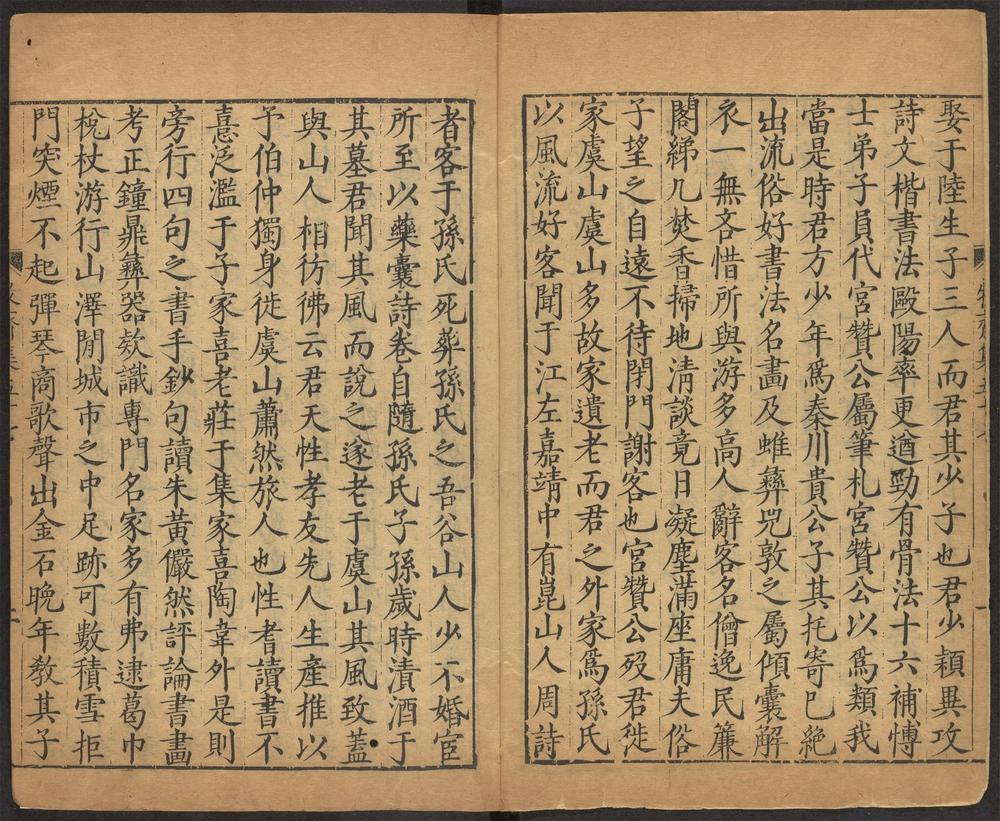 娶于陸生子三人而君其少子也君少穎異攻
詩文楷書法歐陽率更遒勁有骨法十六補博
士弟子員代宮贊公屬筆札宮贊公以爲類我
當是時君方少年爲秦川貴公子其托寄已絶
出流俗好書法名畫及蜼彝兕敦之屬傾囊解
衣一無吝惜所與游多高人辭客名僧逸民簾
閣綈几焚香掃地清談竟日凝塵滿座庸夫俗
子望之自遠不待閉門謝客也宮贊公歿君徙
家虞山虞山多故家遺老而君之外家爲孫氏
以風流好客聞于江左嘉靖中有崑山人周詩
者客于孫氏死葬孫氏之吾谷山人少不婚宦
所至以藥囊詩卷自隨孫氏子孫歲時漬酒于
其墓君聞其風而說之遂老于虞山其風致蓋
與山人相彷彿云君天性孝友先人生産推以
予伯仲獨身徙虞山蕭然旅人也性耆讀書不
憙泛濫于子家喜老莊于集家喜陶韋外是則
旁行四句之書手鈔句讀朱黃儼然評論書畫
考正鐘鼎彝器欵識專門名家多有弗逮葛巾
梲杖游行山澤閒城市之中足跡可數積雪拒
門突煙不起彈琴商歌聲出金石晚年敎其子